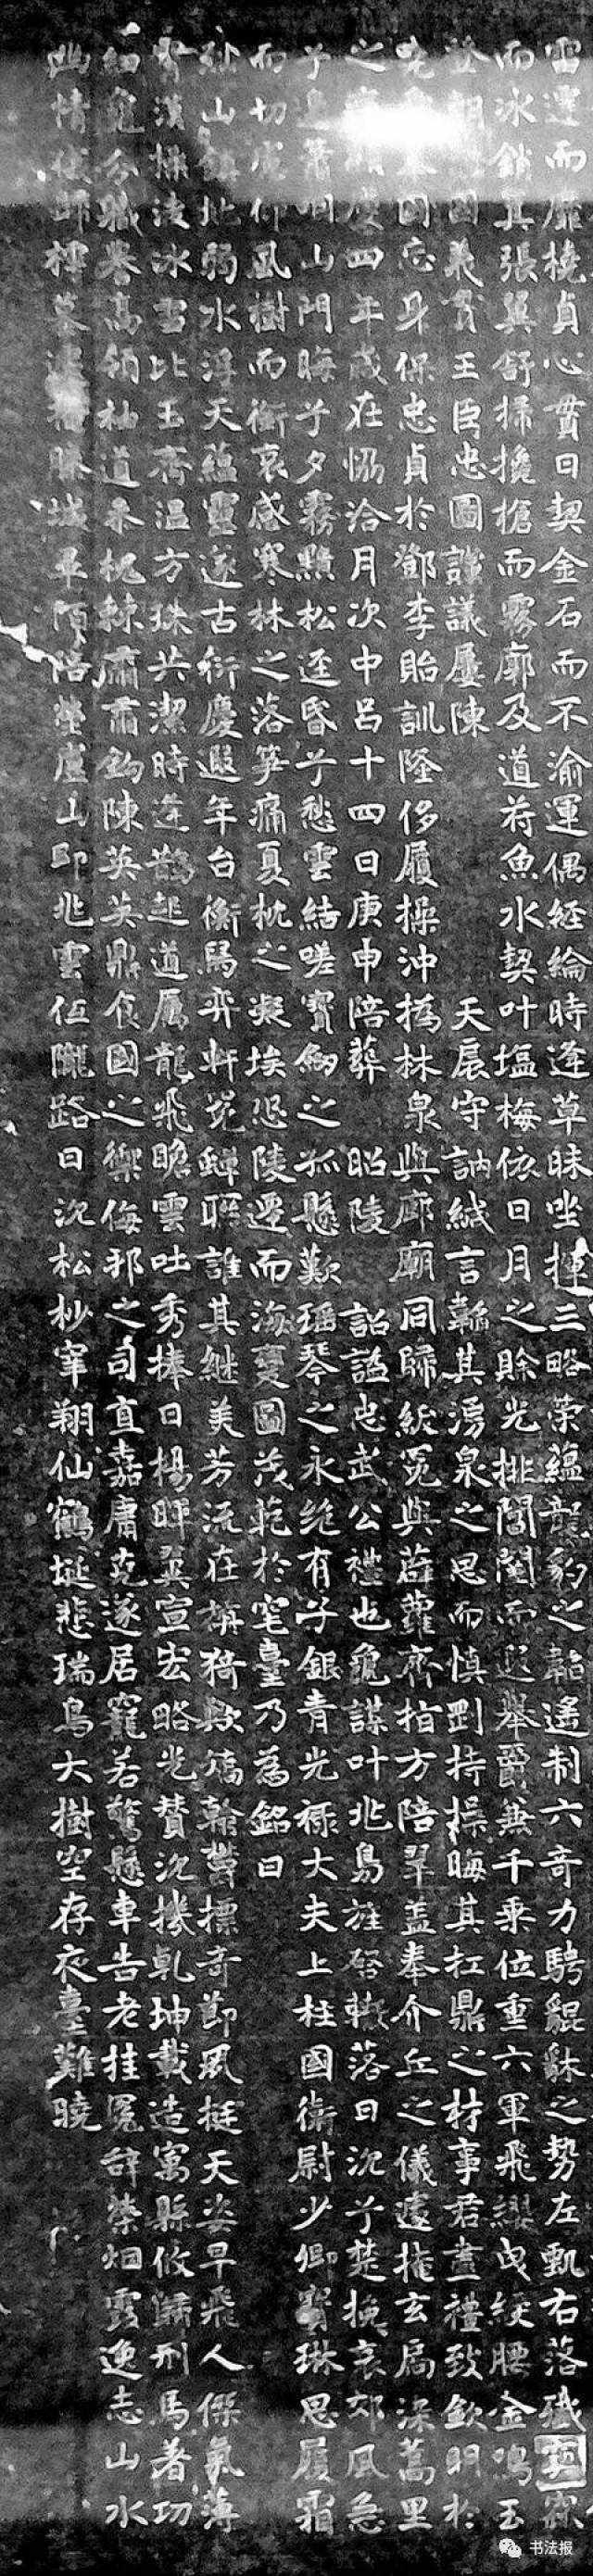 雷遷而靡橈貞心貫日契金石而不渝運偶經綸時逢草昧坐揮三略榮蘊龍豹之韜遙制六奇力騁貔貅之勢左甄右落殲寇
而冰銷翼張翼舒掃攙槍而霧廓及道符魚水契叶塩梅依日月之賖光排閶闔而遐舉爵兼千乘位重六軍飛纓曳綬腰金鳴玉
登朝 國義資王臣忠圖謹議屢陳 天扆守訥緘言韜其湧泉之思而慎剛持操晦其扛鼎之材事君盡禮致欽明於
國忘身保忠貞於鄧李貽訓隆侈履操沖撝林泉與廊廟同歸紱冕與薜蘿齊指方陪翠蓋奉介丘之儀遽掩玄扃深蒿里
之 慶四年歲在協洽月次中呂十四日庚申陪葬 昭陵 詔謚忠武公禮也龜謀叶兆鳥旌啓轍落日沉兮楚挽哀郊風急
兮邊簫咽山門晦兮夕霧黯松逕昏兮愁雲結嗟寶劒之孤懸歎瑶琴之永絶有子銀青光祿大夫上柱國衛尉少卿寶琳思履霜
而切 仰風樹而銜哀感寒林之落笋痛夏枕之凝埃恐陵遷而海變圖茂範於窀臺乃為銘曰
山鎮地弱水浮天蘊靈邃古衍慶遐年台衡馬弈軒冕蟬聯誰其繼美芳流在旃猗歟 幹 摽奇節風挺天姿早飛人傑氣薄
霄漢操淩冰雪比玉齊温方珠共潔時逢鵲起道屬龍飛瞻雲吐秀捧日楊暉翼宣宏略光賛沉機乾坤載造寓縣攸歸刑馬著功
細龜分職譽高 道 槐棘肅肅鈎陳英英鼎食國之禦侮邦之司直嘉庸克遂居寵若驚懸車告老挂冕辞榮烟霞逸志山水
幽情 郭 墓 滕城平陌陪塋廬山即兆雲低隴路日沉松杪窂翔仙鶴埏悲瑞鳥大樹空存夜臺難曉
书法报